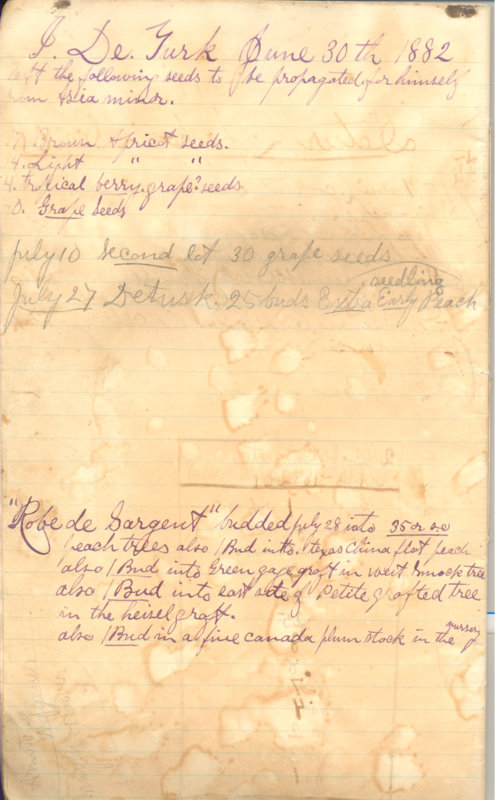 I. De. Turk June 30th 1882
left the following seeds to be propagated for himself
from Asia minor.
Brown Apricot seeds.
4. Light " "
4. tropical berry. grape? seeds
0. Grape Seeds
July 10 Second lot 30 grape seeds
July 27 DeTurk 25 buds Extra Early seedling Peach
"Robe de Sargent" budded July 28 into 35 or
peach trees also 1 Bud into. Texas China flat peach
also 1 Bud into Green gage graft in west Smock tree
also 1 Bud into east side of Petite grafted tree
in the heisel graft.
also 1 Bud in a fine canada plum stock in the nursery